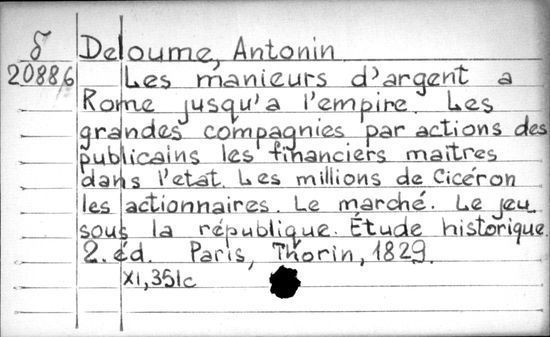 δ Deloume, Antonin
20886 Les manieurs d'argent a
Rome jusqu'a l'empire. Les
grandes compagnies par actions des
publicains les financiers maitres
dans l'etat. Les millions de Cicéron
les actionnaires. Le marché. Le jeu
sous la république. Étude historique.
2. éd. Paris, Thorin, 1829.
XI, 351c